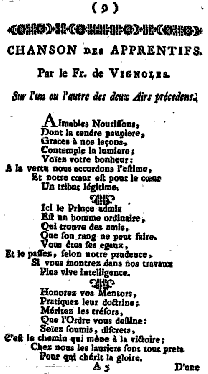 ( 9 )
CHANSON DES APPRENTIFS.
Par le Fr. de VIGNOLES.
Sur l'un ou l'autre des deux Airs précedens.
AImables Nourissons,
Dont la tendre paupiere,
Graces à nos leçons,
Contemple la lumiere;
Voïez votre bonheur:
A la vertu nous accordons l'estime,
Et notre cœur est pour le cœur
Un tribut légitime.
Ici le Prince admis
Est un homme ordinaire,
Qui trouve des amis,
Que son rang ne peut faire.
Vous êtes ses egaux,
Et le passez, selon notre prudence,
Si vous montrez dans nos travaux
Plus vive intelligence.
Honorez vos Mentors,
Pratiques leur doctrine;
Mérites les trésors,
Que l'Ordre vous destine:
Soïez soumis, discrets,
C'est le chemin qui mène à la victoire;
Chez nous les lauriers sont tous prets
Pour qui chérit la gloire.
A 5 D'une